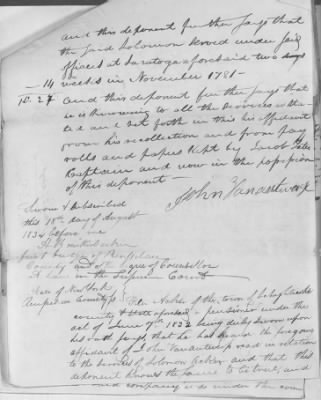 and this deponent further says that
the said Solomon served under said
officers at Saratoga aforesaid two days
— 14 weeks in November 1781 —
10.27 and this deponent further says that
is knowing to all the services
and set forth in this his affidavit
from his recollection and from pay
rolls and papers kept by Jacob
Captain and now in the possession
of this deponent —
John Vanantwerp
Sworn & subscribed
this 18th day of August
1834 before me
first Judge of
County and of the degree of Counsellor
at Law in the Supreme Court
State of New York
County ss
the town of
county & State aforesaid a pensioner under the
act of June 7th 1832 being duly sworn upon
his oath says, that he has heard the foregoing
affidavit of John Vanantwerp read in relation
to the services of Solomon and that this
deponent knows the same to be true, and
and company